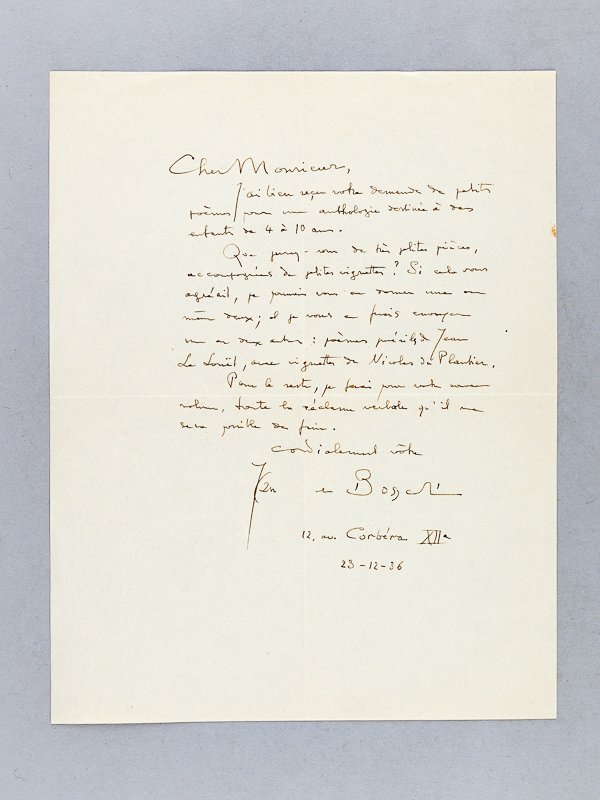 Cher Monsieur,
J'ai bien reçu votre demande de petits
poèmes pour une anthologie destinée à des
enfants de 4 à 10 ans.
Que pensez-vous de très petites pièces,
accompagnées de petites vignettes ? Si cela vous
agréait, je pourrais vous en donner une ou
même deux ; et je vous en ferais envoyer
une ou deux autres : poèmes de Jean
Le Louët, avec vignettes de Nicolas du Plantier.
Pour le reste, je ferai pour votre nouveau
volume, toute la réclame verbale qu'il me
sera possible de faire.
Cordialement vôtre
Jean le
12, av. Corbéra XIIe
23-12-36